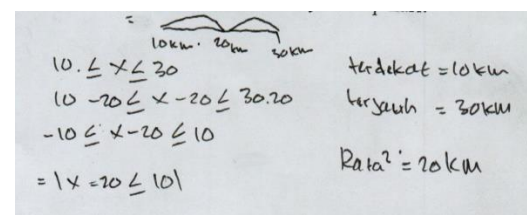 =
10km. 20km 30km
10. ≤ x ≤ 30
10 -20 ≤ x -20 ≤ 30.20
-10 ≤ x-20 ≤ 10
= | x -20 ≤ 10|
terdekat = 10km
terjauh = 30km
Rata² = 20km